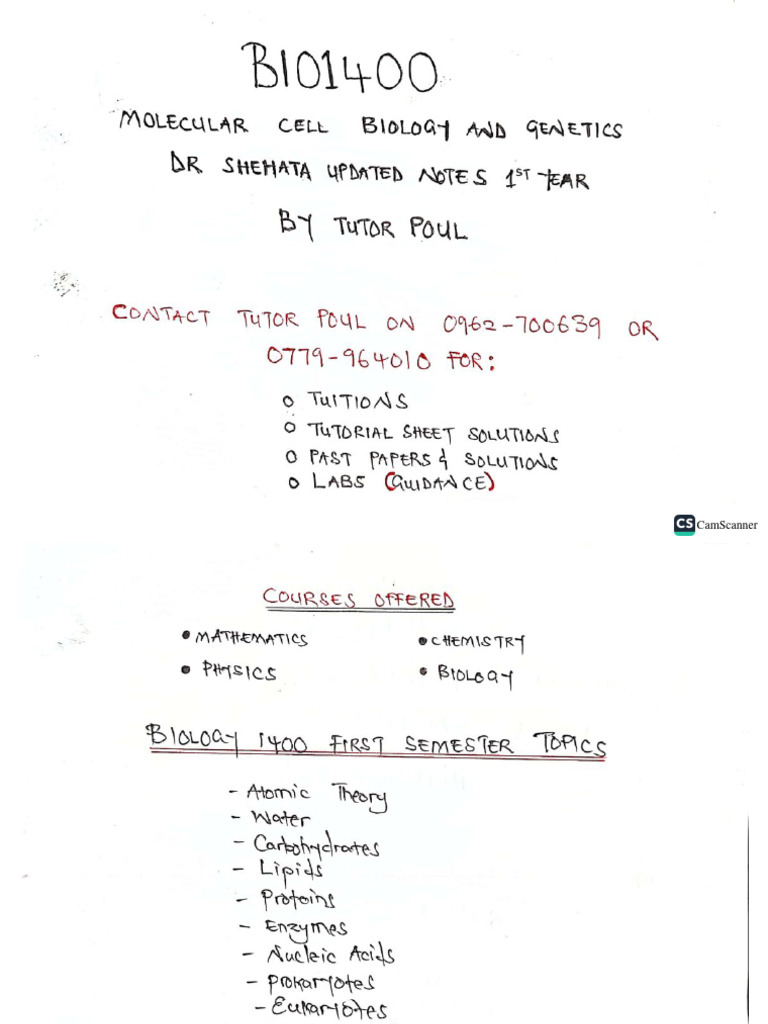 BIO1400
MOLECULAR CELL BIOLOGY AND GENETICS
DR SHEHATA UPDATED NOTES 1ST YEAR
BY TUTOR POUL
CONTACT TUTOR POUL ON 0962-700639 OR
0779-964010 FOR:
o TUITIONS
o TUTORIAL SHEET SOLUTIONS
o PAST PAPERS & SOLUTIONS
o LABS (GUIDANCE)
CS CamScanner
COURSES OFFERED
• MATHEMATICS • CHEMISTRY
• PHYSICS • BIOLOGY
BIOLOGY 1400 FIRST SEMESTER TOPICS
- Atomic Theory
- Water
- Carbohydrates
- Lipids
- Proteins
- Enzymes
- Nucleic Acids
- Prokaryotes
- Eukaryotes